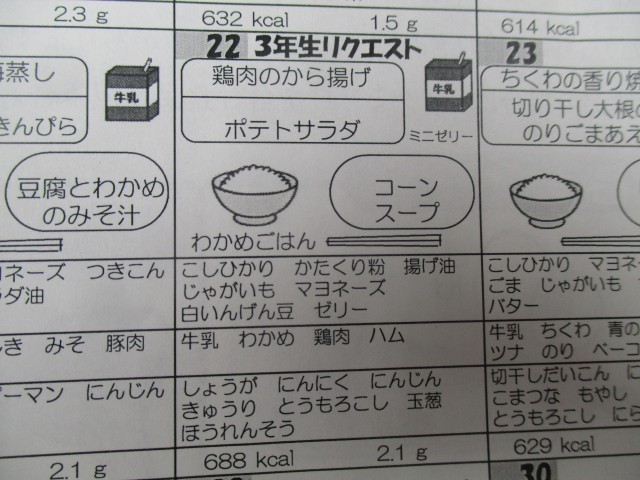 2.3 g
632 kcal 1.5 g
614 kcal
22 3年生リクエスト
23
蒸し
きんぴら
牛乳
豆腐とわかめ
のみそ汁
鶏肉のから揚げ
ポテトサラダ
牛乳
ミニゼリー
コーン
スープ
わかめごはん
ちくわの香り焼
切り干し大根の
のりごまあえ
ヨネーズ つきこん
ラダ油
みそ 豚肉
ピーマン にんじん
2.1 g
こしひかり かたくり粉 揚げ油
じゃがいも マヨネーズ
白いんげん豆 ゼリー
牛乳 わかめ 鶏肉 ハム
しょうが にんにく にんじん
きゅうり とうもろこし 玉葱
ほうれんそう
688 kcal 2.1 g
こしひかり マヨネ
ごま じゃがいも
バター
牛乳 ちくわ 青の
ツナ のり ベーコ
切干しだいこん に
こまつな もやし
とうもろこし にら
629 kcal
30